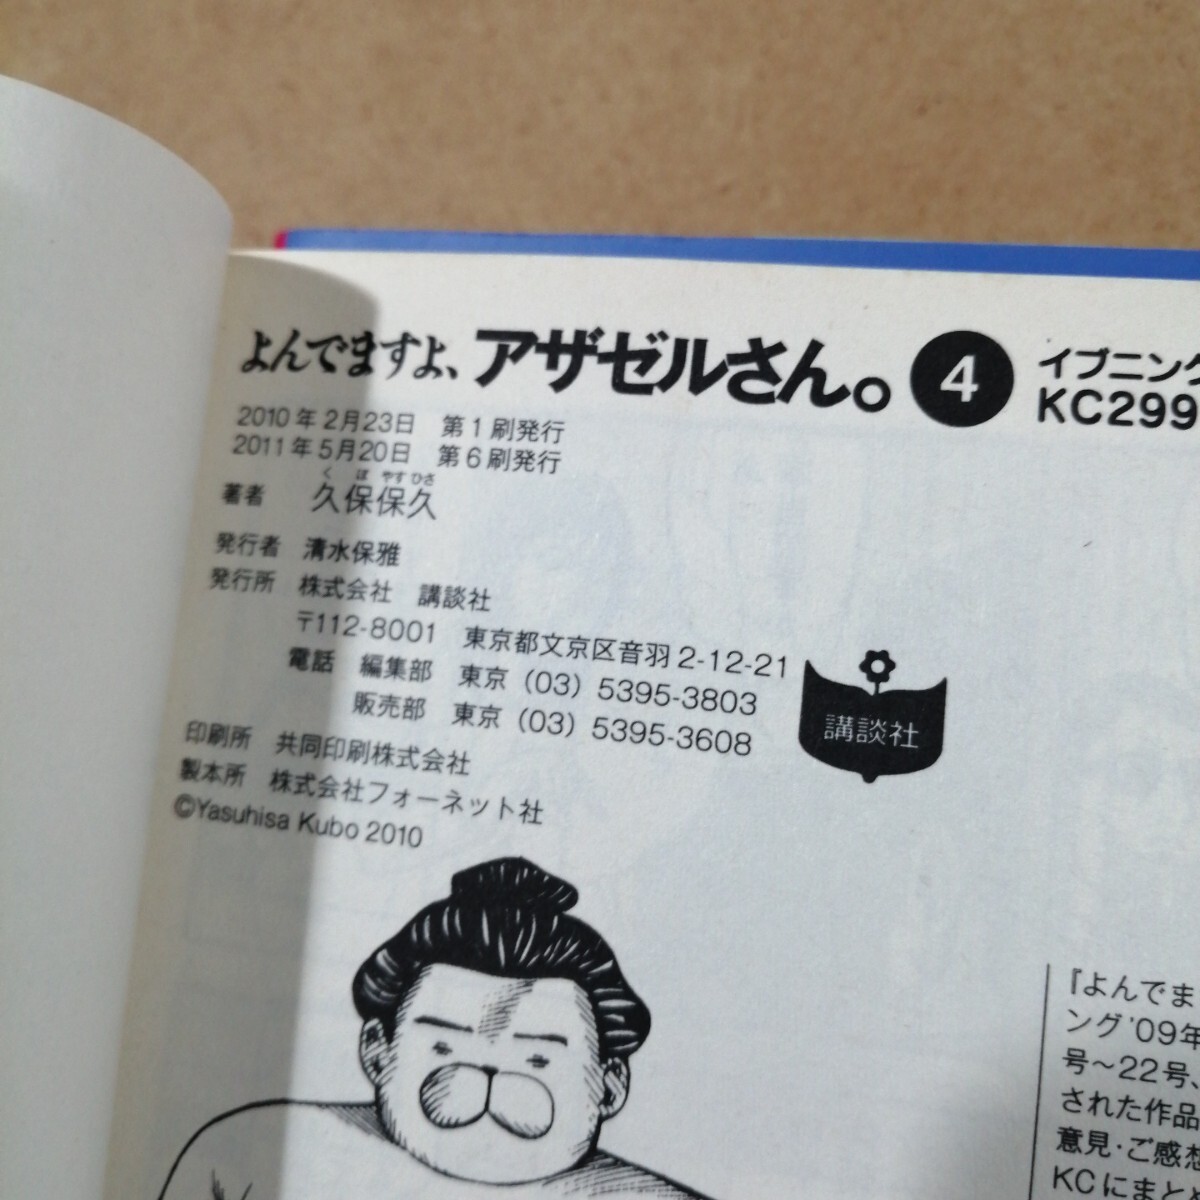 よんでますよ、アザゼルさん。 4 イブニング
KC299
2010年2月23日 第1刷発行
2011年5月20日 第6刷発行
く ぼ やす ひさ
著者 久保保久
発行者 清水保雅
発行所 株式会社 講談社
〒112-8001 東京都文京区音羽2-12-21
電話 編集部 東京（03）5395-3803
販売部 東京（03）5395-3608
講談社
印刷所 共同印刷株式会社
製本所 株式会社フォーネット社
©Yasuhisa Kubo 2010
『よんでま
ング'09年
号～22号、
された作品
意見・ご感想
KCにまと